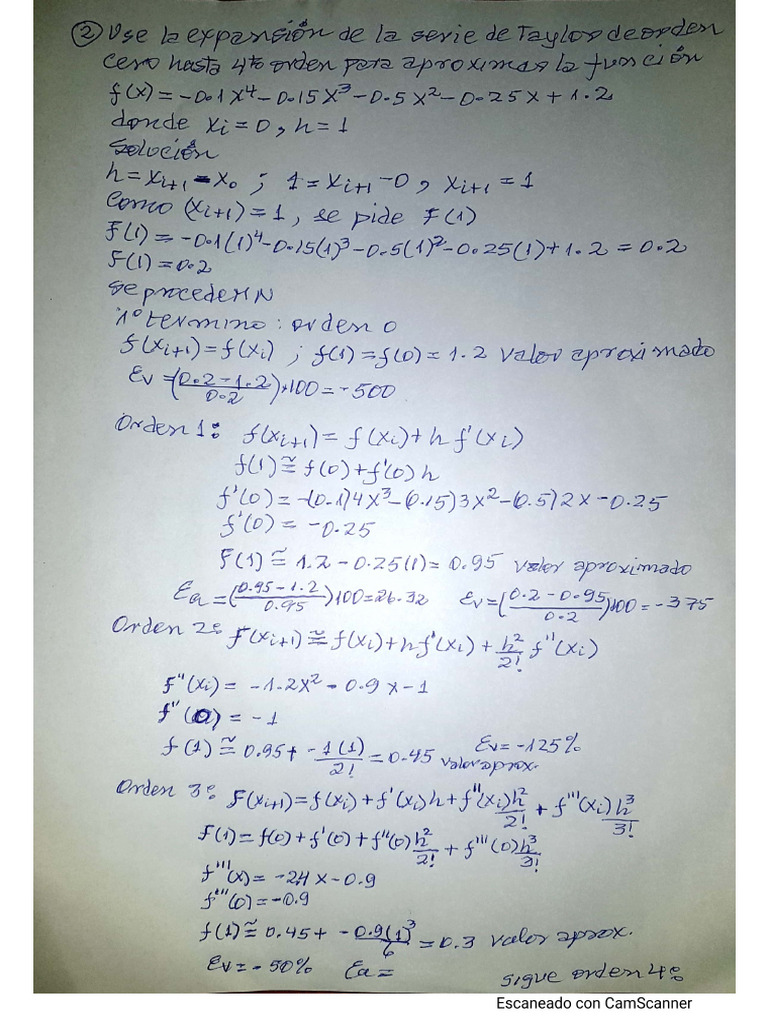 ② Use la expansión de la serie de Taylor de orden
cero hasta 4to orden para aproximar la función
f(x) = -0.1x⁴ - 0.15x³ - 0.5x² - 0.25x + 1.2
donde xi = 0, h = 1
Solución
h = xi+1 - x0 ; 1 = xi+1 - 0, xi+1 = 1
Como (xi+1) = 1, se pide f(1)
f(1) = -0.1(1)⁴ - 0.15(1)³ - 0.5(1)² - 0.25(1) + 1.2 = 0.2
f(1) = 0.2
Se procede
1º termino: orden 0
f(xi+1) = f(xi) ; f(1) = f(0) = 1.2 valor aproximado
Ev = (0.2 - 1.2 / 0.2)*100 = -500
Orden 1: f(xi+1) = f(xi) + h f'(xi)
f(1) ≅ f(0) + f'(0) h
f'(0) = -(0.1)4x³ - (0.15)3x² - (0.5)2x - 0.25
f'(0) = -0.25
f(1) ≅ 1.2 - 0.25(1) = 0.95 valor aproximado
Ea = (0.95 - 1.2 / 0.95)100 = 26.32 Ev = (0.2 - 0.95 / 0.2)*100 = -375
Orden 2: f(xi+1) ≅ f(xi) + hf'(xi) + h²/2! f''(xi)
f''(xi) = -1.2x² - 0.9x - 1
f''(0) = -1
f(1) ≅ 0.95 + -1(1)/2! = 0.45 valor aprox. Ev = -125%
Orden 3: f(xi+1) = f(xi) + f'(xi)h + f''(xi)h²/2! + f'''(xi)h³/3!
f(1) = f(0) + f'(0) + f''(0)h²/2! + f'''(0)h³/3!
f'''(x) = -2.4x - 0.9
f'''(0) = -0.9
f(1) ≅ 0.45 + -0.9(1)³/6 = 0.3 valor aprox.
Ev = -50% Ea =
sigue orden 4:
Escaneado con CamScanner